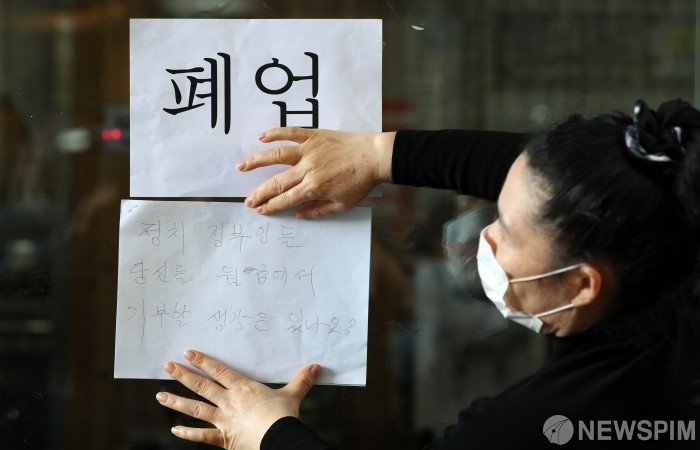 폐업
정치 정부인들
당신들 월급에서
기부할 생각은 있나요?
NEWSPIM